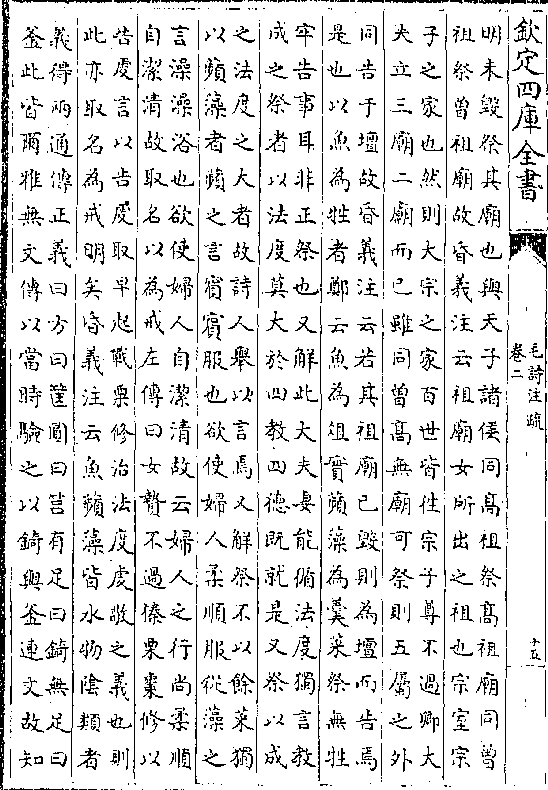 欽定四庫全書
毛詩注疏
卷二
十五
明未毀祭其廟也與天子諸侯同髙祖祭髙祖廟同曾
祖祭曾祖廟故昏義注云祖廟女所出之祖也宗室宗
子之家也然則大宗之家百世皆往宗子尊不過卿大
夫立三廟二廟而已雖同曾髙無廟可祭則五屬之外
同告于壇故昏義注云若其祖廟已毀則為壇而告焉
是也以魚為牲者鄭云魚為俎實蘋藻為羹菜祭無牲
牢告事耳非正祭也又解此大夫妻能循法度獨言教
成之祭者以法度莫大於四教四德既就是又祭以成
之法度之大者故詩人舉以言焉又解祭不以餘菜獨
以蘋藻者蘋之言賓賓服也欲使婦人柔順服從藻之
言澡澡浴也欲使婦人自潔清故云婦人之行尚柔順
自潔清故取名以為戒左傳曰女贄不過榛栗棗修以
告虔言以告虔取早起戰栗修治法度虔敬之義也則
此亦取名為戒明矣昏義注云魚蘋藻皆水物陰類者
義得兩通傳正義曰方曰筐圓曰筥有足曰錡無足曰
釜此皆爾雅無文傳以當時驗之以錡與釜連文故知